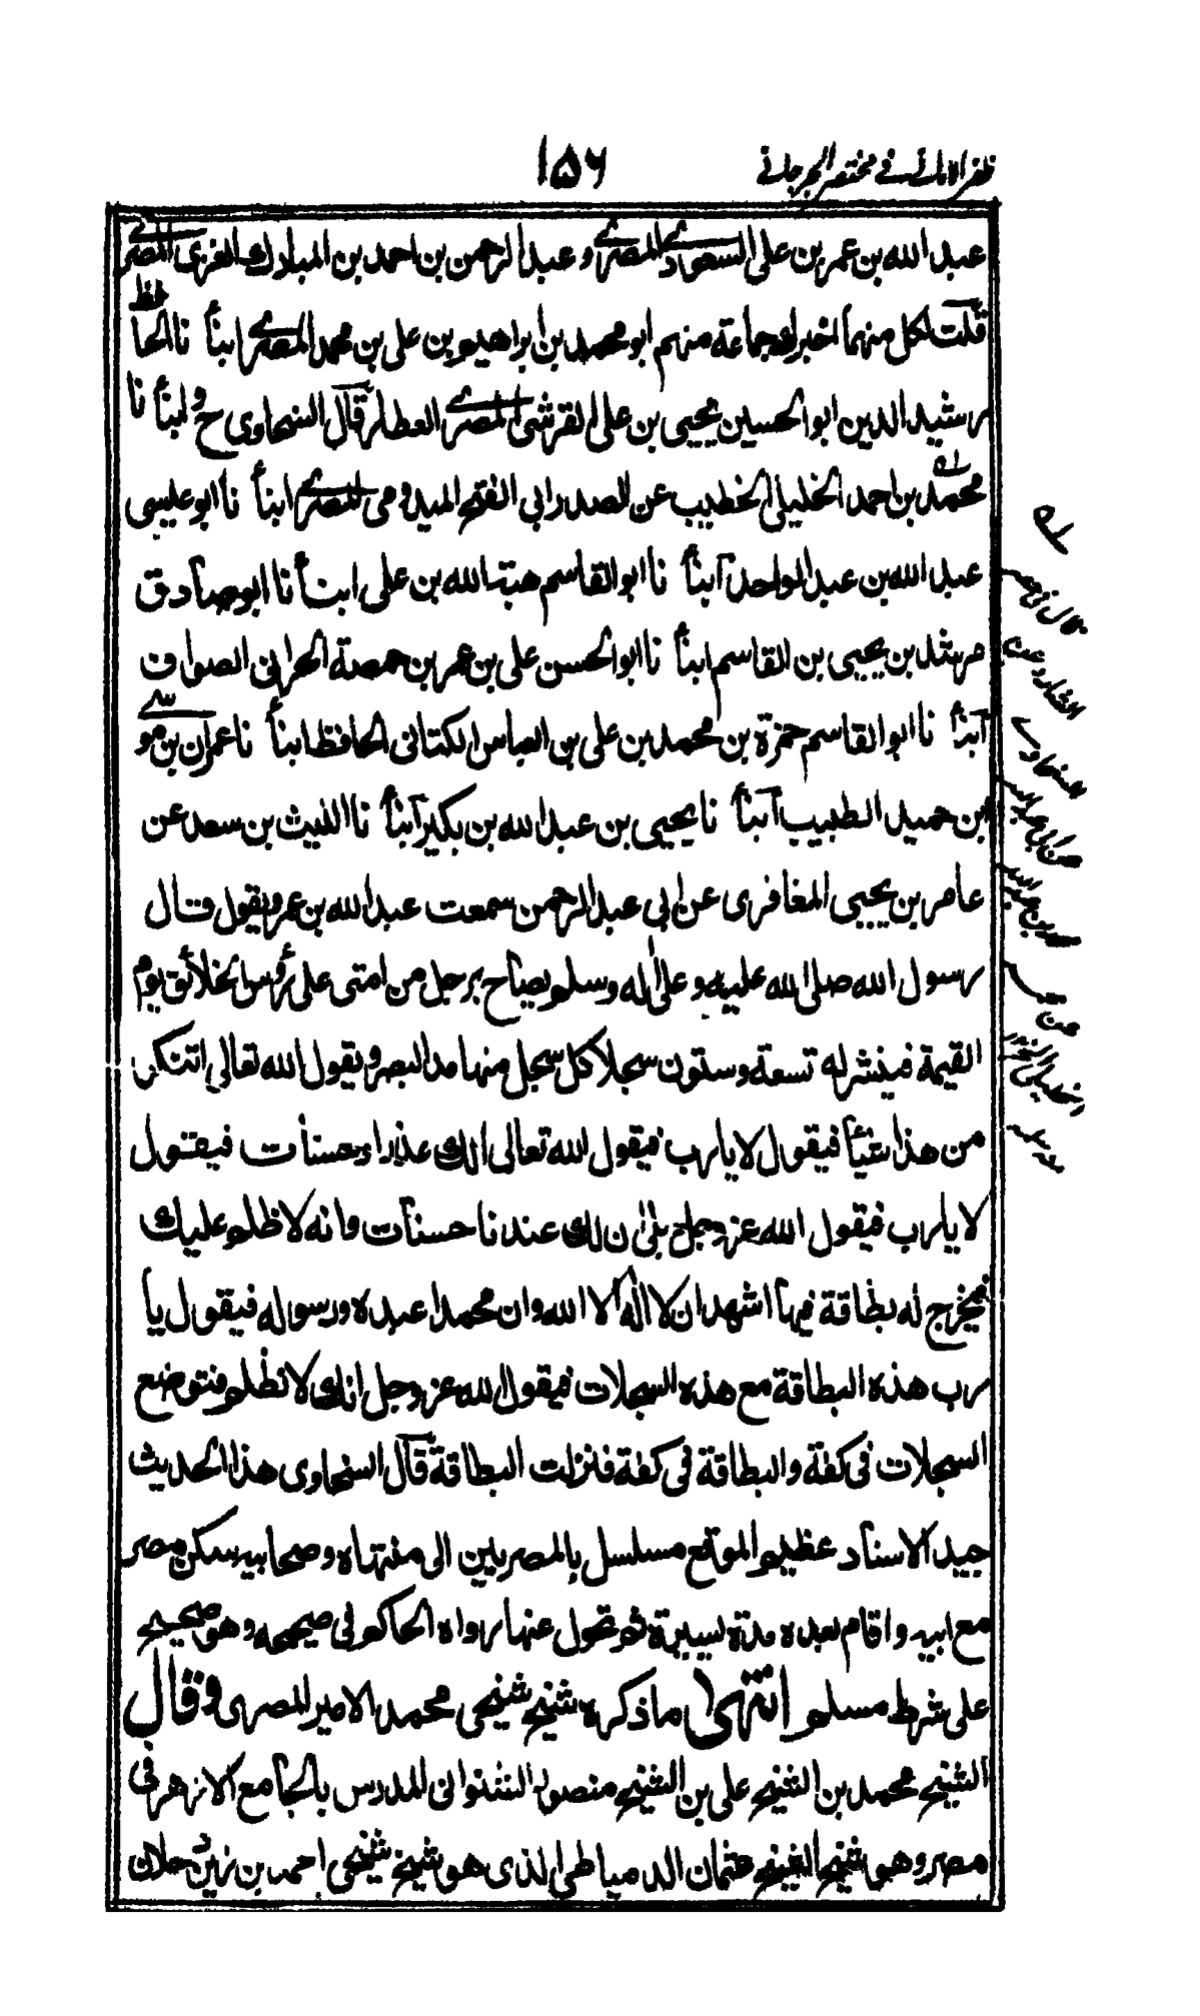 ظفر الامانی فی مختصر الجرجانی
۱۵۶
عبد الله بن عمر بن علی السعودی المصری و عبد الرحمن بن احمد بن المبارك الغزی المصری
قلت لكل منهما اخبرك جماعة منهم ابو محمد بن ابراهیم بن علی بن محمد المصری ابنأ نا الحافظ
رشید الدین ابو الحسین یحیی بن علی القرشی المصری العطار قال السخاوی ح و ابنأ نا
محمد بن احمد الخلیلی الخطیب عن الصدر ابی الفتح المیدومی المصری ابنأ نا ابو عیسی
عبد الله بن عبد الواحد ابنأ نا ابو القاسم هبة الله بن علی ابنأ نا ابو صادق
مرشد بن یحیی بن القاسم ابنأ نا ابو الحسن علی بن عمر بن حمصة الحرانی الصواف
ابنأ نا ابو القاسم حمزة بن محمد بن علی بن العباس الكتانی الحافظ ابنأ نا عمران بن موسی
ابن حمید الطبیب ابنأ نا یحیی بن عبد الله بن بكیر ابنأ نا اللیث بن سعد عن
عامر بن یحیی المغافری عن ابی عبد الرحمن سمعت عبد الله بن عمرو یقول قال
رسول الله صلی الله علیه و علی اله وسلم یصاح برجل من امتی علی رؤس الخلائق یوم
القیمة فینشر له تسعة وستون سجلا كل سجل منها مد البصر و یقول الله تعالی اتنكر
من هذا شیئا فیقول لا یا رب فیقول الله تعالی الك عذر او حسنات فیقول
لا یا رب فیقول الله عز وجل بلی ان لك عندنا حسنات وانه لا ظلم علیك
فیخرج له بطاقة فیها اشهد ان لا اله الا الله وان محمدا عبده ورسوله فیقول یا
رب هذه البطاقة مع هذه السجلات فیقول الله عز وجل انك لا تظلم فتوضع
السجلات فی كفة والبطاقة فی كفة فنزلت البطاقة قال السخاوی هذا الحدیث
جید الاسناد عظیم الموقع مسلسل بالمصریین الی منتهاه وصحابیه سكن مصر
مع ابیه واقام بعده مدة یسیرة ثم تحول عنها رواه الحاكم فی صحیحه وهو صحیح
علی شرط مسلم انتهی ما ذكره شیخ شیخی محمد الامیر المصری وقال
الشیخ محمد بن الشیخ علی بن الشیخ منصور الشنوانی المدرس بالجامع الازهر فی
مصر وهو شیخ الشیخ عثمان الدمیاطی الذی هو شیخ شیخی احمد بن زین دحلان
السخاوی
عن